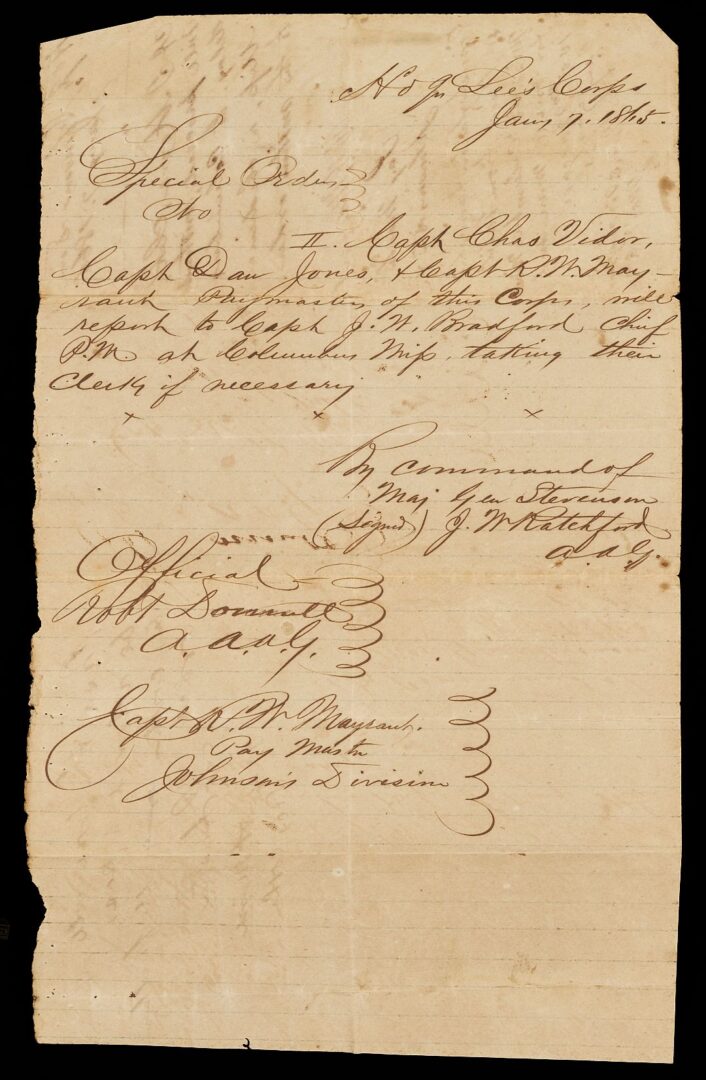 Hd Qrs Lee's Corps
Jany 7. 1865.
Special Orders
No
II. Capt Chas Vidor,
Capt Dan Jones, & Capt R. W. May-
rant Paymasters of this Corps, will
report to Capt J. W. Bradford Chief
P.M at Columbus Miss, taking their
Clerks if necessary
x x x
By command of
Maj Gen Stevenson
(Signed) J. W Ratchford
A.A.G.
Official
Robt
A.A.A.G.
Capt R. W. Mayrant.
Pay Mastr
Johnson's Division